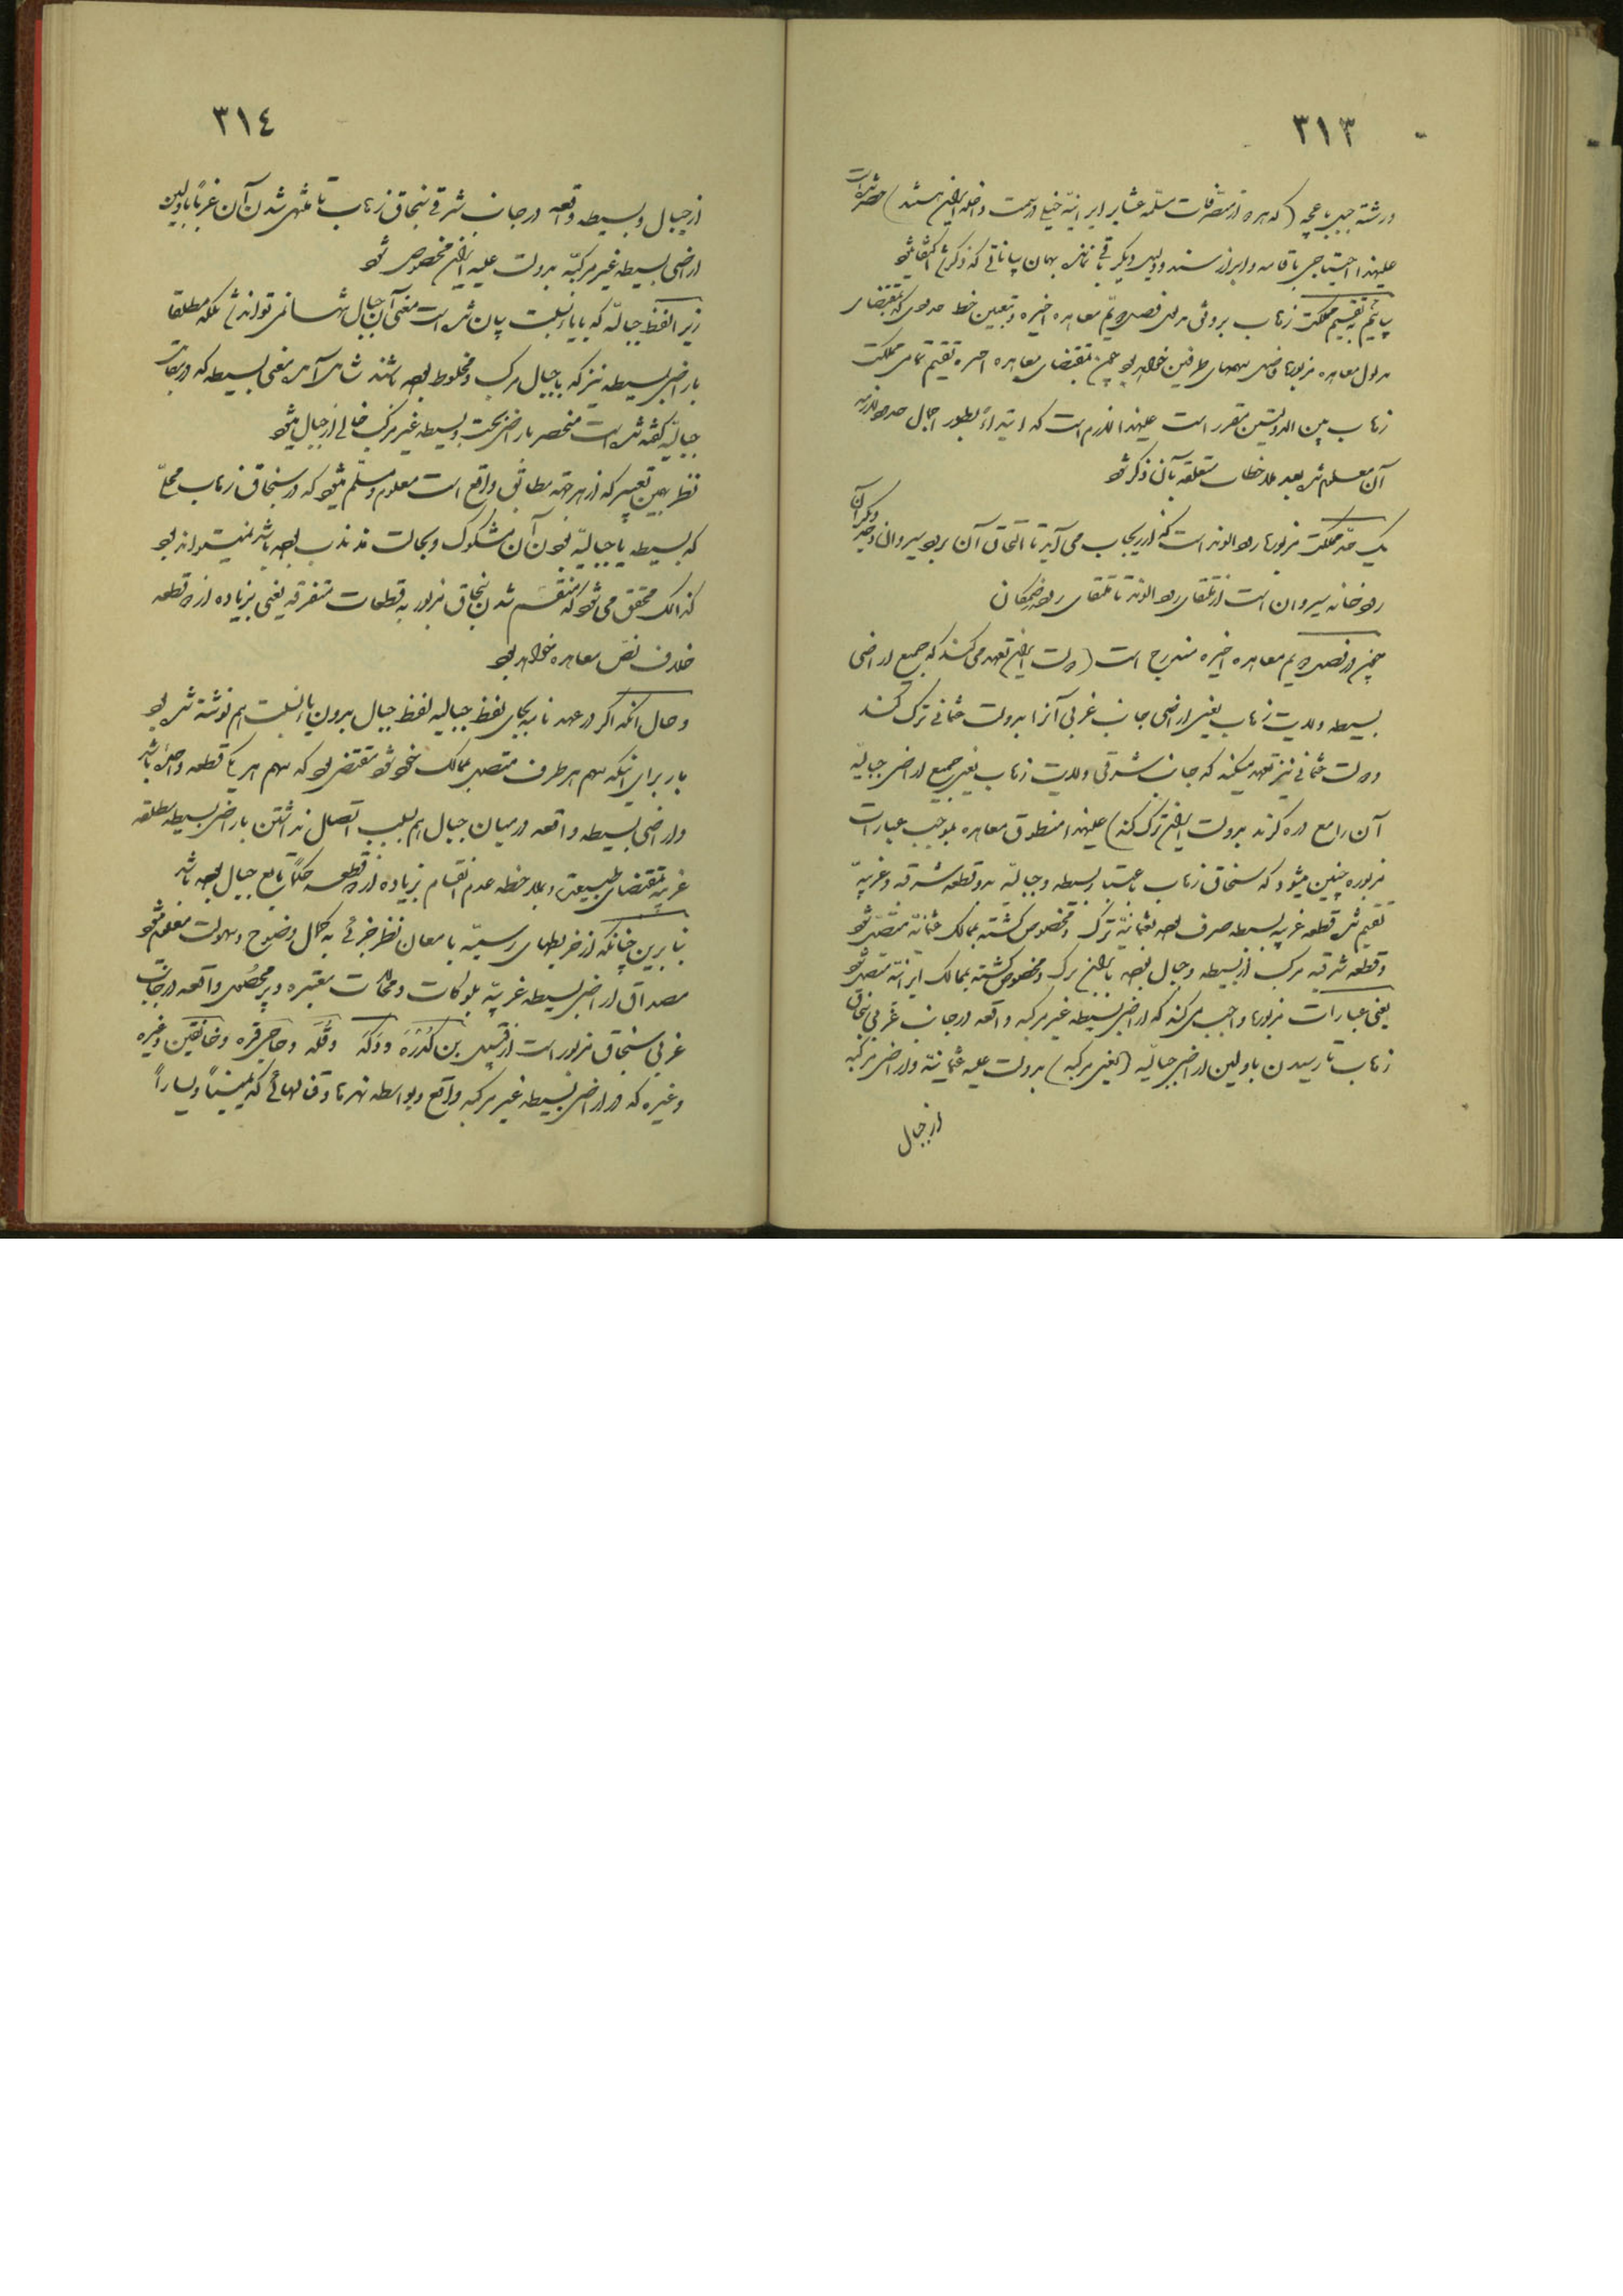 ٣١٣
ورشته جبیرباغچه (که هر ه از متصرفات مسلمه عشایر ایرانیه خیلی درست داخله ایران هستند)
علیهذا احتیاجی باقامه و ابراز سند و دلیل دیگر باقی نمانده بهمان بیاناتی که ذکر شد اکتفا میشود
بیائیم به تقسیم مملکت زهاب بر وفق مدلول فصل دویم معاهده اخیره و تعیین خط حدودی که بمقتضای
مدلول معاهده مزبوره فاصل سهمهای طرفین خواهد بود چون بمقتضای معاهده اخیره تقسیم تمامی مملکت
زهاب بین الدولتین مقرر است علیهذا لازم است که ابتداءً بطور اجمال حدود لازمه
آن معلوم شده بعد ملاحظات متعلقه بآن ذکر شود
یک حد مملکت مزبوره رود الوند است که از ریجاب می آید تا التحاق آن برود سیروان و حد دیگر آن
رودخانه سیروان است از ملتقای رود الوند تا ملتقای رود زمکان
چون در فصل دویم معاهده اخیره مندرج است (دولت ایران تعهد می کند که جمیع اراضی
بسیطه ولایت زهاب یعنی اراضی جانب غربی آنرا بدولت عثمانی ترک کند
و دولت عثمانی نیز تعهد میکند که جانب شرقی ولایت زهاب یعنی جمیع اراضی جبالیه
آن را مع دره کرند بدولت ایران ترک کند) علیهذا منطوق معاهده بموجب عبارات
مزبوره چنین میشود که سنجاق زهاب باعتبار بسیطه و جبالیه بدو قطعه شرقیه و غربیه
تقسیم شده قطعه غربیه بسیطه صرف بوده بعثمانیه ترک و مخصوص گشته بممالک عثمانیه متصل شود
و قطعه شرقیه مرکب از بسیطه و جبال بوده بایران ترک و مخصوص گشته بممالک ایرانیه متصل شود
یعنی عبارات مزبوره واجب می کند که اراضی بسیطه غیر مرکبه واقعه در جانب غربی سنجاق
زهاب تا رسیدن باولین اراضی جبالیه (یعنی مرکبه) بدولت علیه عثمانیه و اراضی مرکبه
از جبال
٣١٤
از جبال و بسیطه واقعه در جانب شرقی سنجاق زهاب تا منتهی شدن آن غرباً باولین
اراضی بسیطه غیر مرکبه بدولت علیه ایران مخصوص شود
زیرا لفظ جبالیه که با یاء نسبت بیان شده است معنی آن جبال تنها نمی تواند شد بلکه مطلقا
باراضی بسیطه نیز که با جبال مرکب و مخلوط بوده باشند شامل آمده معنی بسیطه که در مقابل
جبالیه گفته شده است منحصر باراضی بحت و بسیطه غیر مرکب خالی از جبال میشود
نظر بهمین تعبیر که از هر جهة مطابق واقع است معلوم و مسلم میشود که در سنجاق زهاب محلی
که بسیطه یا جبالیه بودن آن مشکوک و بحالت مذبذب بوده باشد نمیتواند بود
کذالک محقق می شود که منقسم شدن سنجاق مزبور به قطعات متفرقه یعنی بزیاده از دو قطعه
خلاف نص معاهده خواهد بود
و حال آنکه اگر در عهدنامه بجای لفظ جبالیه لفظ جبال بدون یاء نسبت هم نوشته شده بود
باز برای اینکه سهم هر طرف متصل بممالک خود شود مقتضی بود که سهم هر یک قطعه واحده باشد
و اراضی بسیطه واقعه در میان جبال هم بسبب اتصال نداشتن باراضی بسیطه مطلقه
غربیه بمقتضای طبیعت و بملاحظه عدم انقسام بزیاده از دو قطعه حکماً تابع جبال بوده باشد
بنابرین چنانکه از خریطهای رسمیه بامعان نظر جزئی به کمال وضوح و سهولت مفهوم میشود
مصداق اراضی بسیطه غربیه بلوکات و محالات معتبره و پر محصول واقعه در جانب
غربی سنجاق مزبور است از قبیل بن کدره و دکه و قله و حاجی قره و خانقین و غیره
و غیره که در اراضی بسیطه غیر مرکبه واقع و بواسطه نهرها و قنالهائی که یمیناً و یساراً